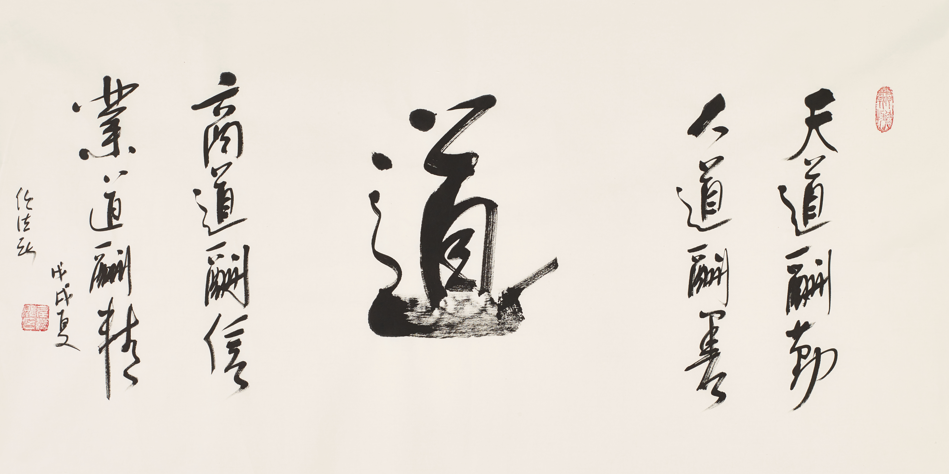 天道酬勤
人道酬善
道
商道酬信
業道酬精
戊戌夏